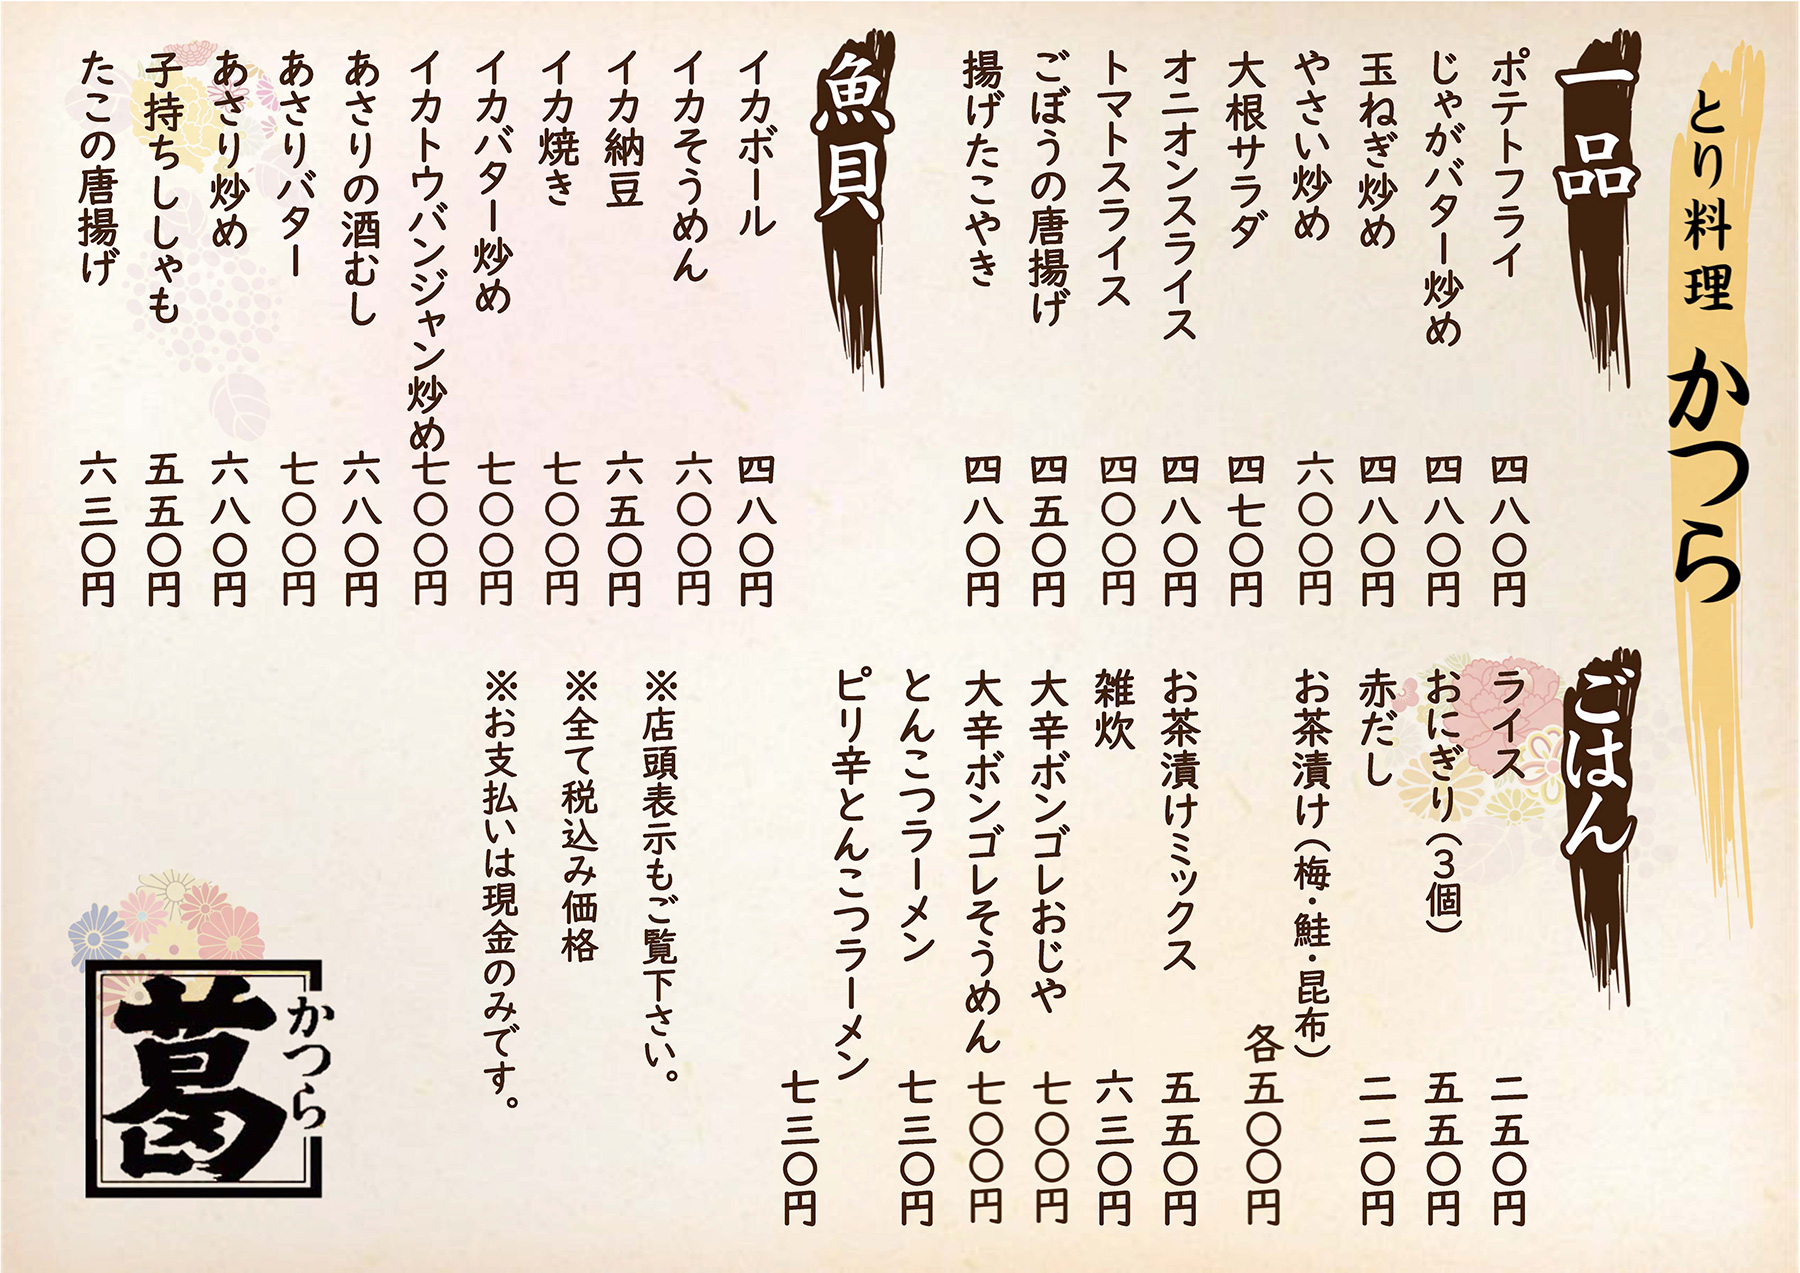 とり料理 かつら
一品
ポテトフライ 四八〇円
じゃがバター炒め 四八〇円
玉ねぎ炒め 四八〇円
やさい炒め 六〇〇円
大根サラダ 四七〇円
オニオンスライス 四八〇円
トマトスライス 四〇〇円
ごぼうの唐揚げ 四五〇円
揚げたこやき 四八〇円
魚貝
イカボール 四八〇円
イカそうめん 六〇〇円
イカ納豆 六五〇円
イカ焼き 七〇〇円
イカバター炒め 七〇〇円
イカトウバンジャン炒め 七〇〇円
あさりの酒むし 六八〇円
あさりバター 七〇〇円
あさり炒め 六八〇円
子持ちししゃも 五五〇円
たこの唐揚げ 六三〇円
ごはん
ライス 二五〇円
おにぎり（３個） 五五〇円
赤だし 二二〇円
お茶漬け（梅・鮭・昆布）
各五〇〇円
お茶漬けミックス 五五〇円
雑炊 六三〇円
大辛ボンゴレおじや 七〇〇円
大辛ボンゴレそうめん 七〇〇円
とんこつラーメン 七三〇円
ピリ辛とんこつラーメン
七三〇円
※店頭表示もご覧下さい。
※全て税込み価格
※お支払いは現金のみです。
かつら
葛